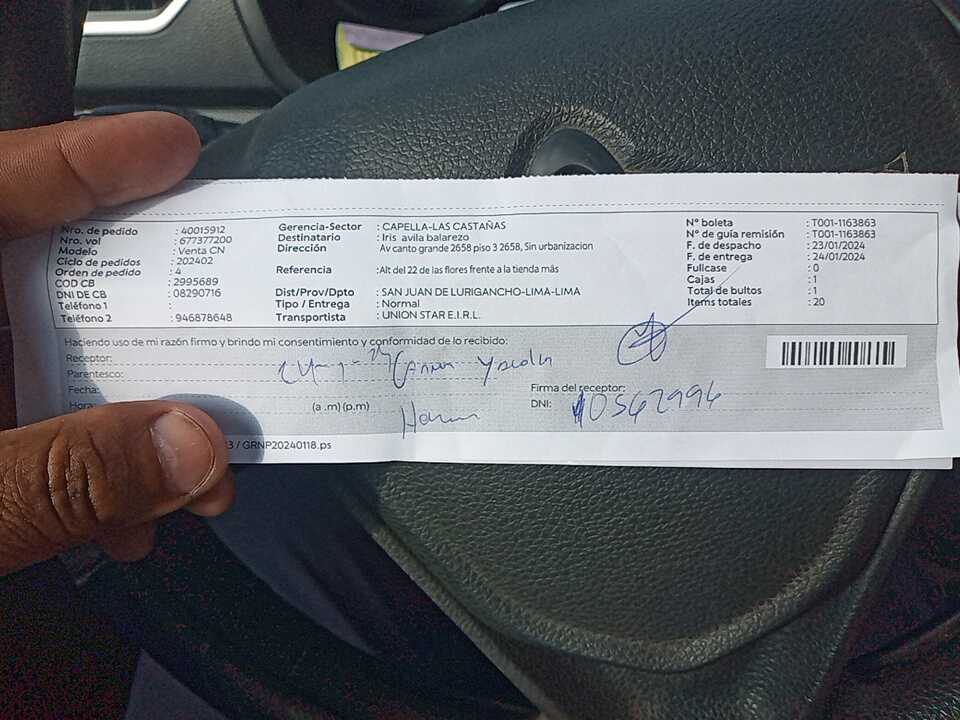 Nro. de pedido : 40015912
Nro. vol : 677377200
Modelo : Venta CN
Ciclo de pedidos : 202402
Orden de pedido : 4
COD CB : 2995689
DNI DE CB : 08290716
Teléfono 1 :
Teléfono 2 : 946878648
Gerencia-Sector : CAPELLA-LAS CASTAÑAS
Destinatario : Iris avila balarezo
Dirección Av canto grande 2658 piso 3 2658, Sin urbanizacion
Referencia : Alt del 22 de las flores frente a la tienda más
Dist/Prov/Dpto : SAN JUAN DE LURIGANCHO-LIMA-LIMA
Tipo / Entrega : Normal
Transportista : UNION STAR E.I.R.L.
N° boleta : T001-1163863
N° de guía remisión : T001-1163863
F. de despacho : 23/01/2024
F. de entrega : 24/01/2024
Fullcase : 0
Cajas : 1
Total de bultos : 1
Items totales : 20
Haciendo uso de mi razón firmo y brindo mi consentimiento y conformidad de lo recibido:
Receptor:
Parentesco:
Fecha:
Hora: (a .m) (p.m)
Firma del receptor:
DNI: 10562994
3 / GRNP20240118.ps